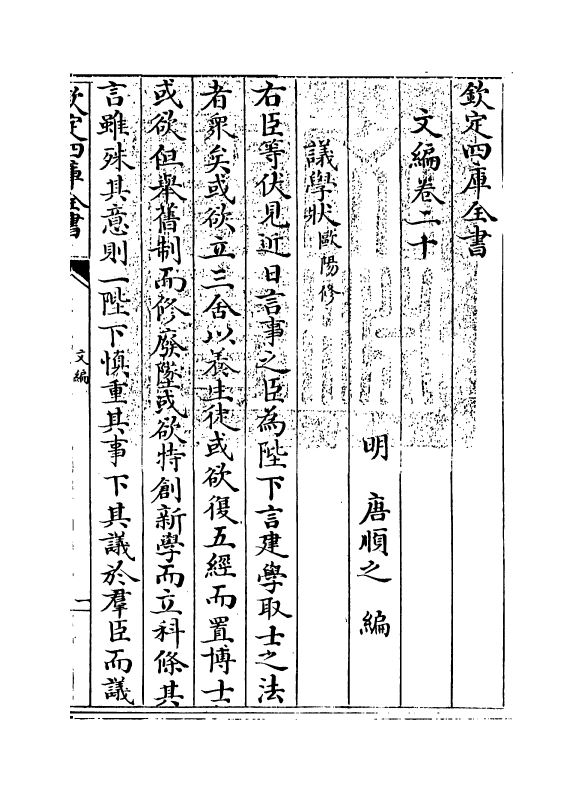 欽定四庫全書
文編卷二十
明 唐順之 編
議學狀歐陽修
右臣等伏見近日言事之臣為陛下言建學取士之法
者衆矣或欲立三舍以養生徒或欲復五經而置博士
或欲但舉舊制而修廢墜或欲特創新學而立科條其
言雖殊其意則一陛下慎重其事下其議於羣臣而議
欽定四庫全書
文編
一